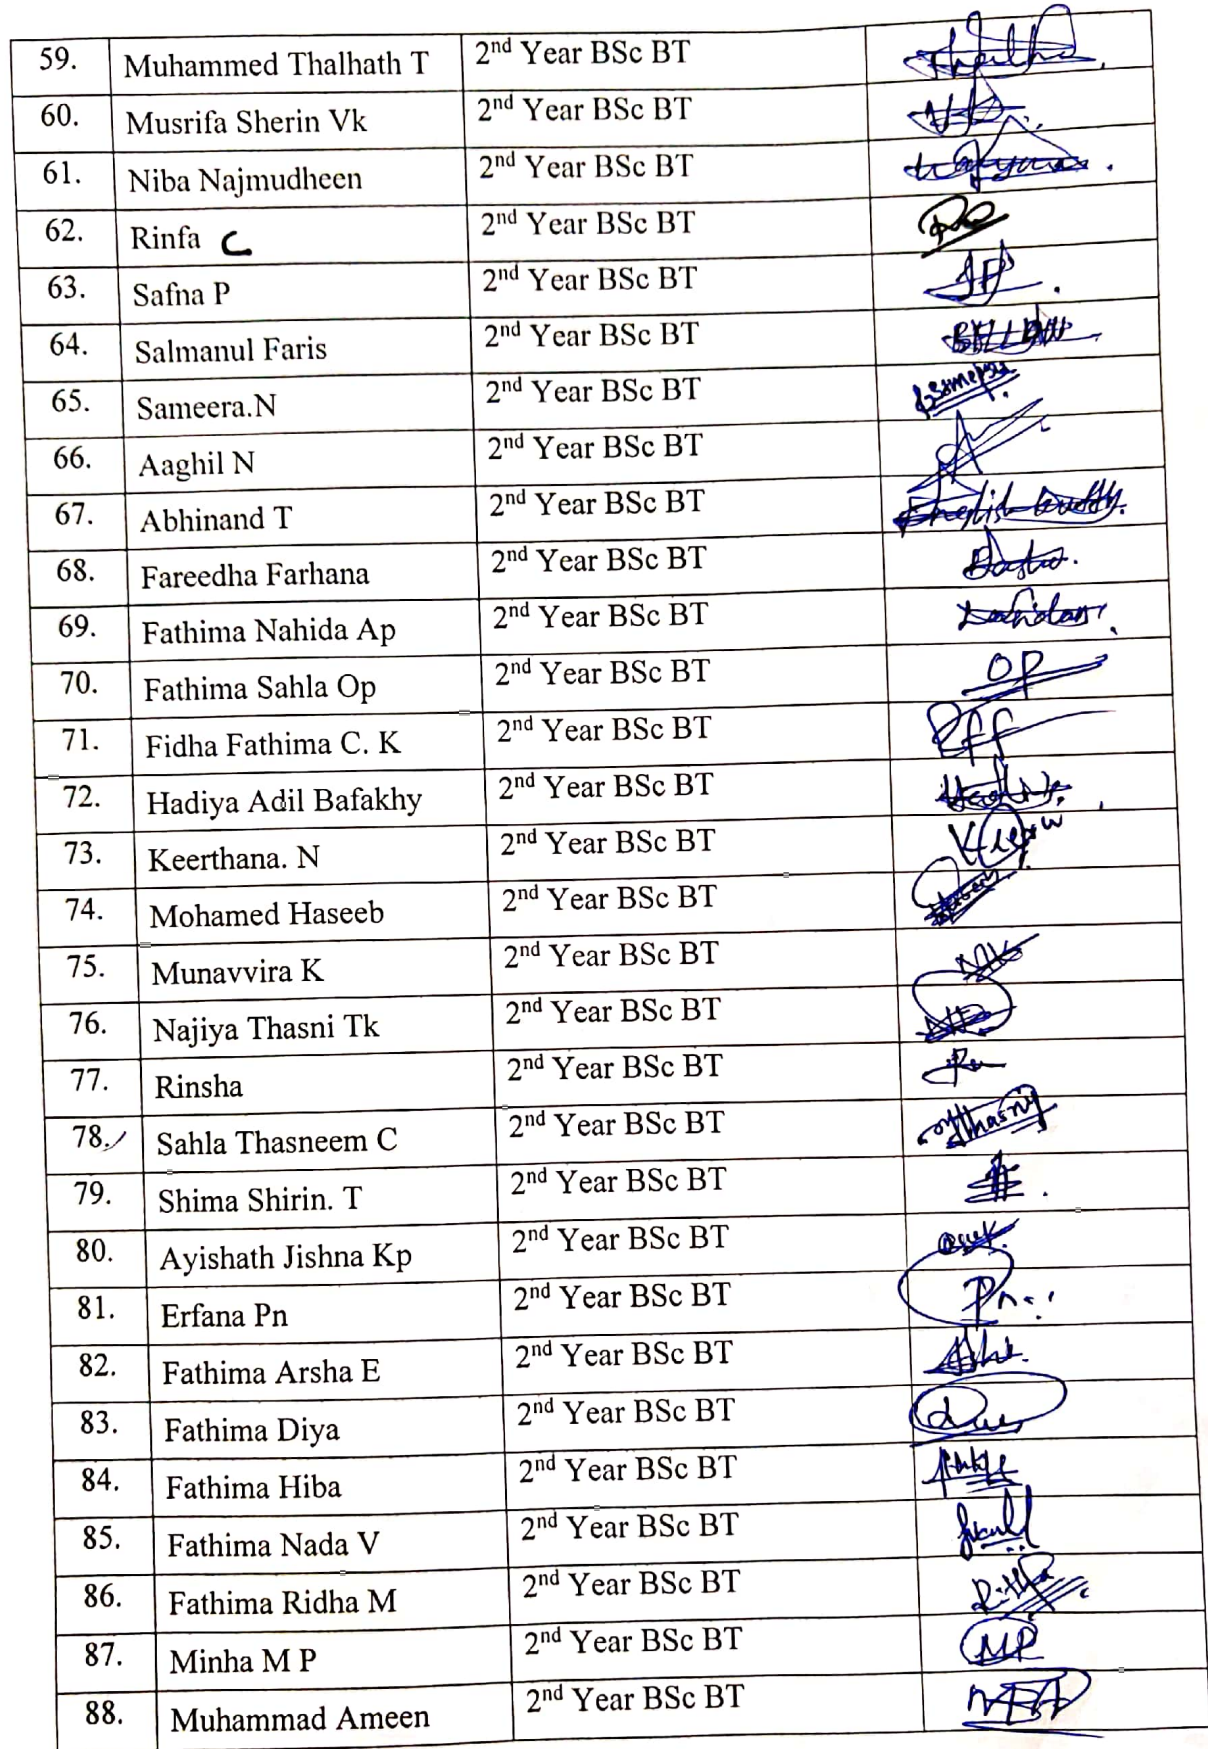 59. Muhammed Thalhath T 2nd Year BSc BT
60. Musrifa Sherin Vk 2nd Year BSc BT
61. Niba Najmudheen 2nd Year BSc BT
62. Rinfa C 2nd Year BSc BT
63. Safna P 2nd Year BSc BT
64. Salmanul Faris 2nd Year BSc BT
65. Sameera.N 2nd Year BSc BT
66. Aaghil N 2nd Year BSc BT
67. Abhinand T 2nd Year BSc BT
68. Fareedha Farhana 2nd Year BSc BT
69. Fathima Nahida Ap 2nd Year BSc BT
70. Fathima Sahla Op 2nd Year BSc BT OP
71. Fidha Fathima C. K 2nd Year BSc BT
72. Hadiya Adil Bafakhy 2nd Year BSc BT
73. Keerthana. N 2nd Year BSc BT
74. Mohamed Haseeb 2nd Year BSc BT
75. Munavvira K 2nd Year BSc BT
76. Najiya Thasni Tk 2nd Year BSc BT
77. Rinsha 2nd Year BSc BT
78. Sahla Thasneem C 2nd Year BSc BT
79. Shima Shirin. T 2nd Year BSc BT
80. Ayishath Jishna Kp 2nd Year BSc BT
81. Erfana Pn 2nd Year BSc BT Pn
82. Fathima Arsha E 2nd Year BSc BT
83. Fathima Diya 2nd Year BSc BT
84. Fathima Hiba 2nd Year BSc BT
85. Fathima Nada V 2nd Year BSc BT
86. Fathima Ridha M 2nd Year BSc BT
87. Minha M P 2nd Year BSc BT MP
88. Muhammad Ameen 2nd Year BSc BT